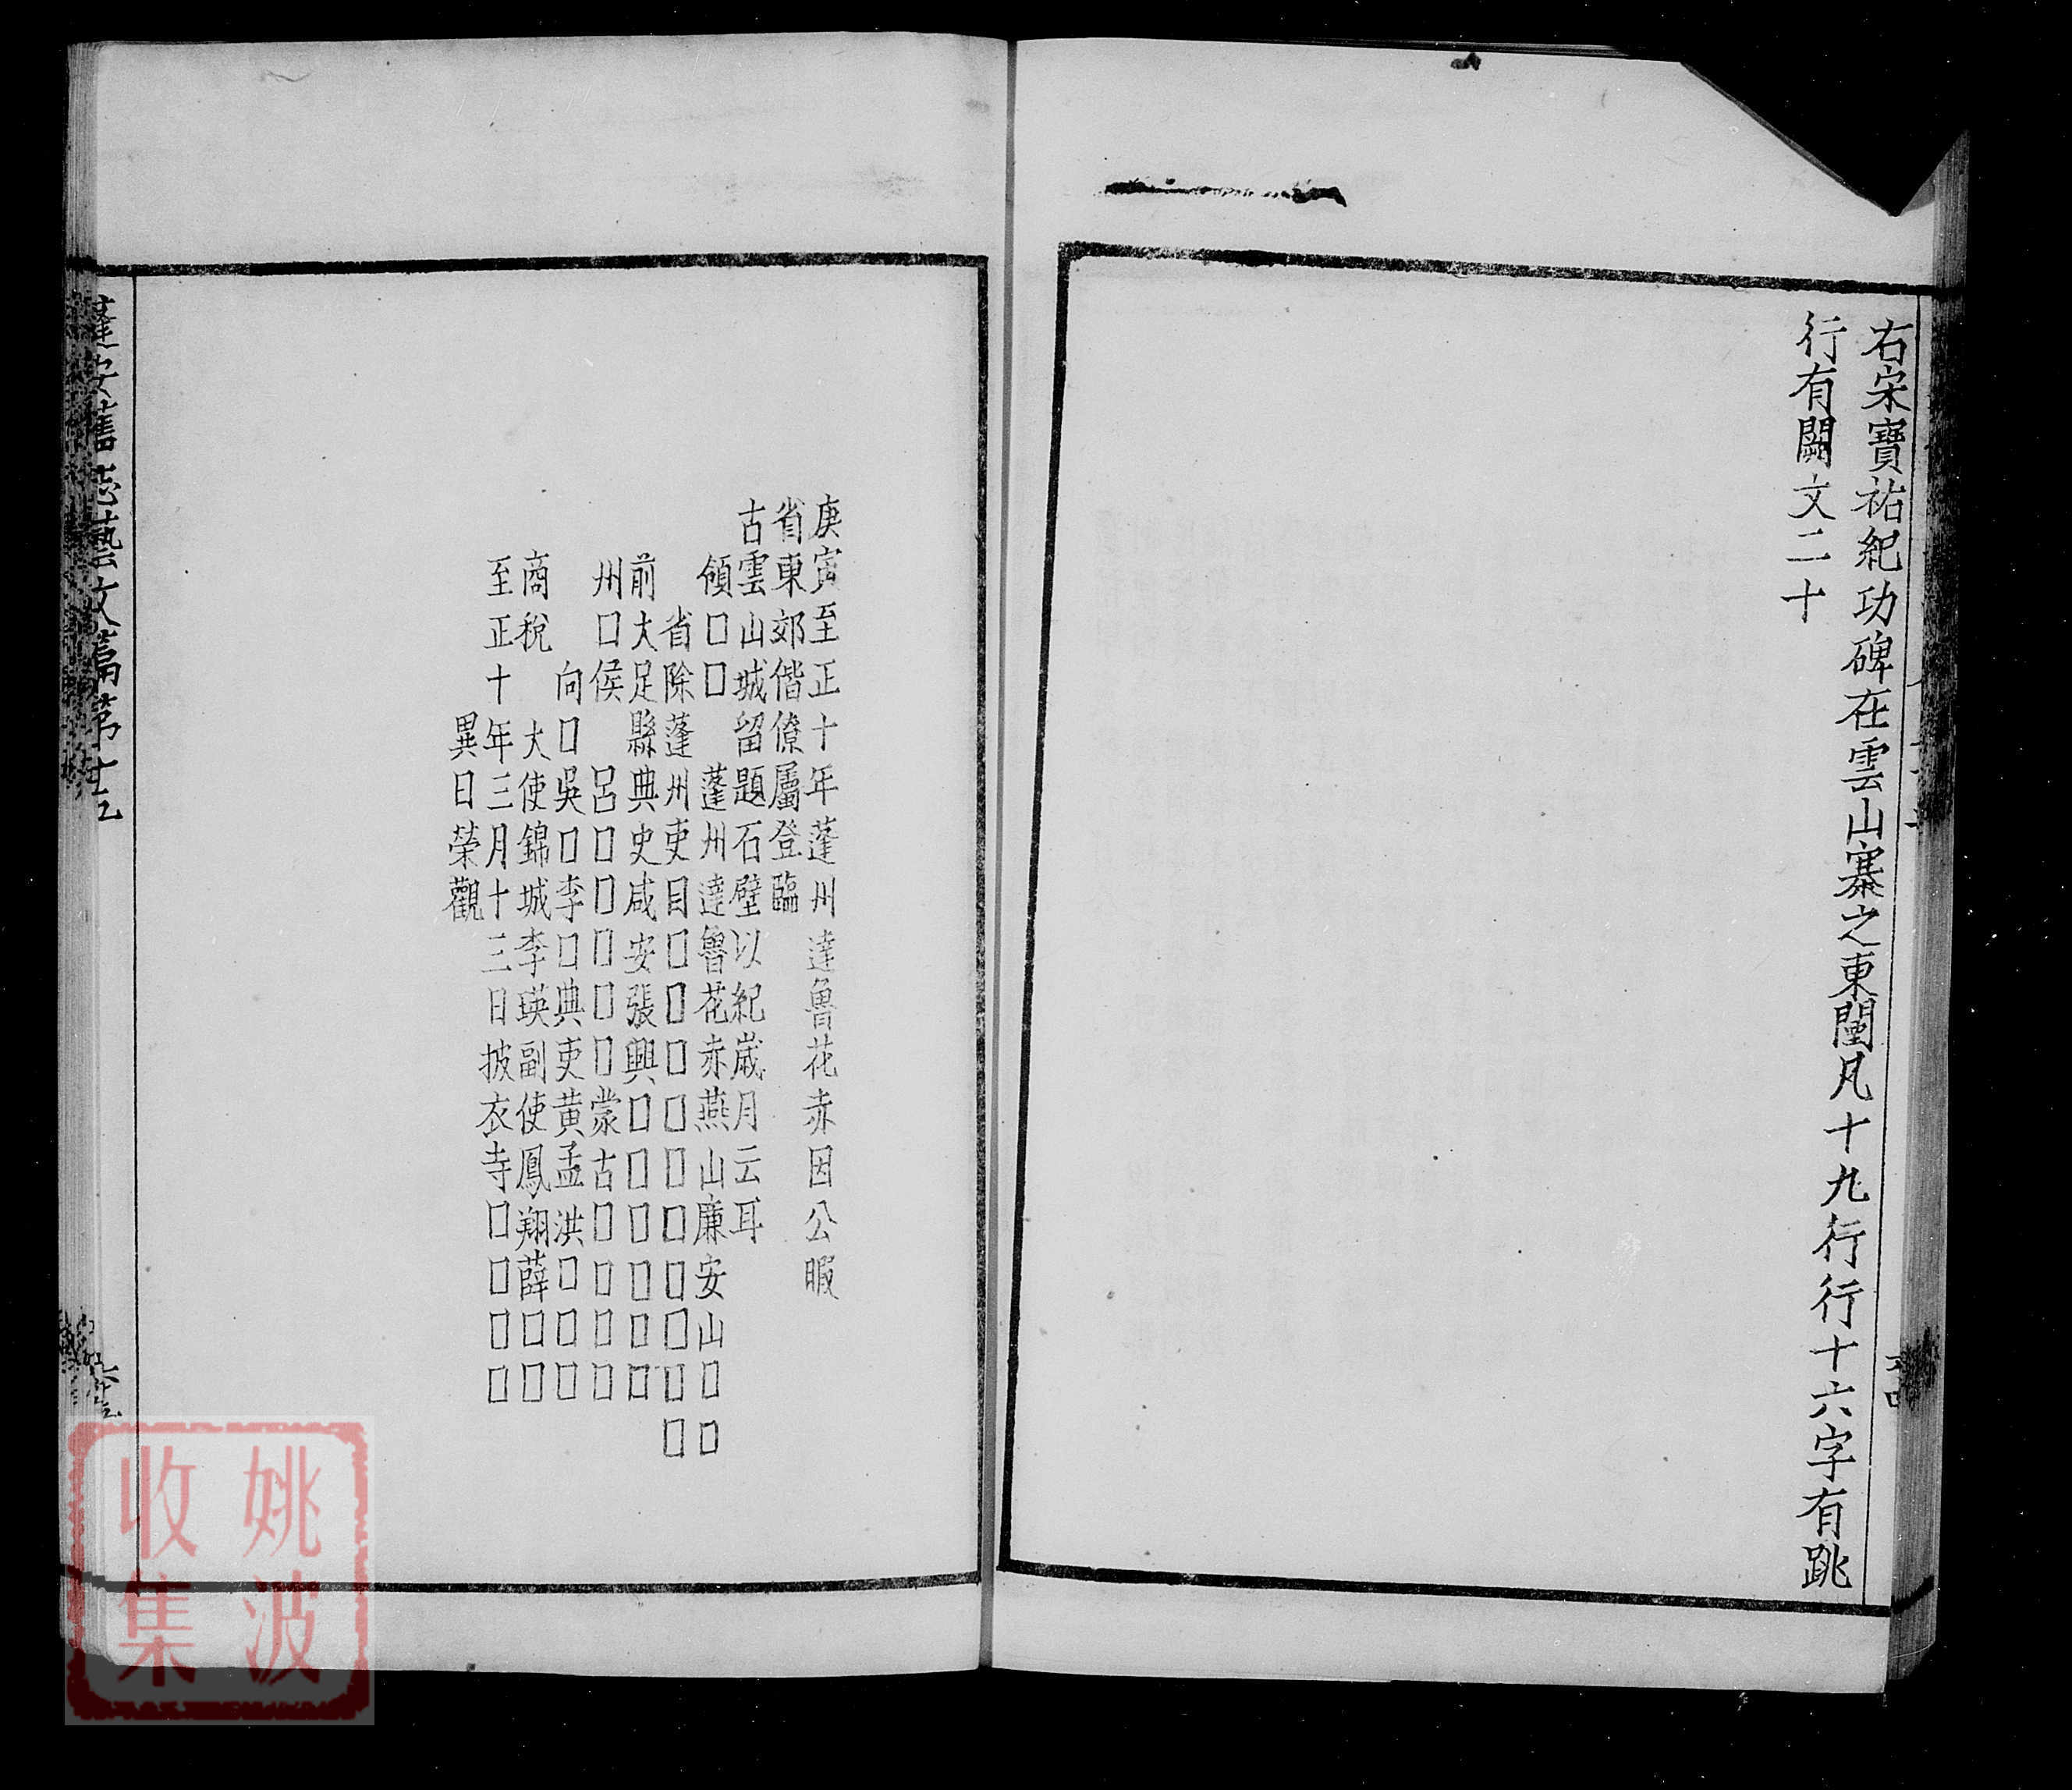 右宋寶祐紀功碑在雲山寨之東閩凡十九行行十六字有跳
行有闕文二十
庚寅至正十年蓬州達魯花赤因公暇
省東郊偕僚屬登臨
古雲山城留題石壁以紀歲月云耳
領□□ 蓬州達魯花赤燕山廉安山□□
省除蓬州吏目□□□□□□□□□□
前大足縣典史咸安張興□□□□□□
州□侯 呂□□□□□蒙古□□□□
向□吳□李□典吏黃孟洪□□□
商稅 大使錦城李瑛副使鳳翔薛□□
至正十年三月十三日披衣寺□□□□
異日榮觀
蓬安舊志藝文篇第十五
姚波
收集